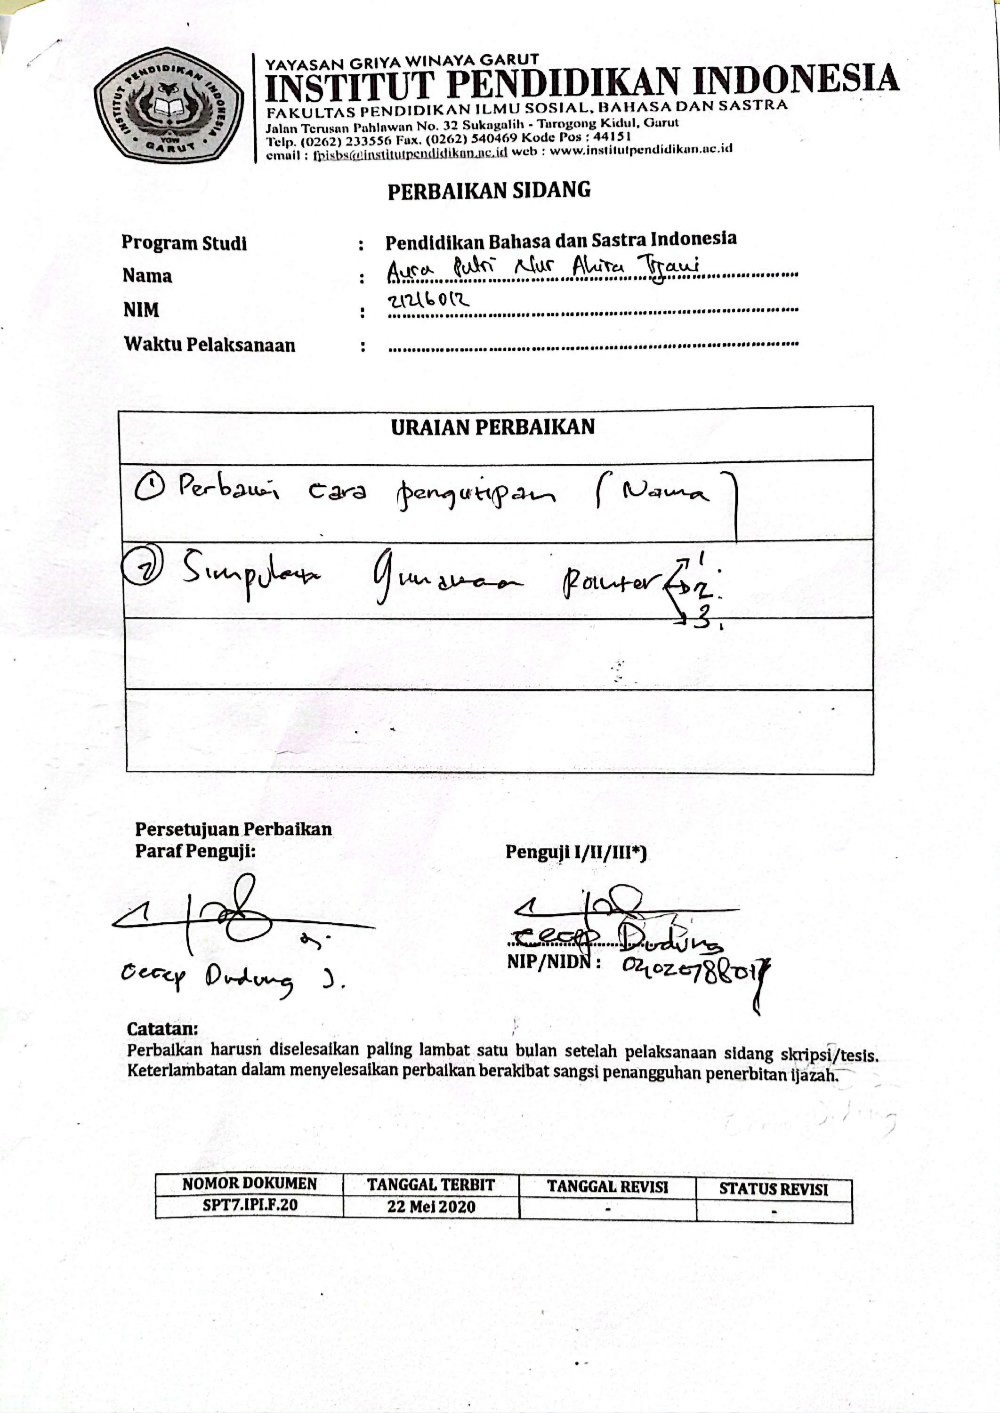 YAYASAN GRIYA WINAYA GARUT
INSTITUT PENDIDIKAN INDONESIA
FAKULTAS PENDIDIKAN ILMU SOSIAL, BAHASA DAN SASTRA
Jalan Terusan Pahlawan No. 32 Sukagalih - Tarogong Kidul, Garut
Telp. (0262) 233556 Fax. (0262) 540469 Kode Pos : 44151
email : fpisbs@institutpendidikan.ac.id web : www.institutpendidikan.ac.id
INSTITUT PENDIDIKAN INDONESIA
YGW
GARUT
PERBAIKAN SIDANG
Program Studi : Pendidikan Bahasa dan Sastra Indonesia
Nama : Aura Putri Nur
NIM : 21216012
Waktu Pelaksanaan :
URAIAN PERBAIKAN
1 Perbaiki cara pengutipan (Nama)
2 Simpulan Gunakan Pointer 1.
2.
3.
Persetujuan Perbaikan
Paraf Penguji: Penguji I/II/III*)
Cecep Dudung
Cecep Dudung
NIP/NIDN :
Catatan:
Perbaikan harusn diselesaikan paling lambat satu bulan setelah pelaksanaan sidang skripsi/tesis.
Keterlambatan dalam menyelesaikan perbaikan berakibat sangsi penangguhan penerbitan ijazah.
NOMOR DOKUMEN TANGGAL TERBIT TANGGAL REVISI STATUS REVISI
SPT7.IPI.F.20 22 Mei 2020 - -